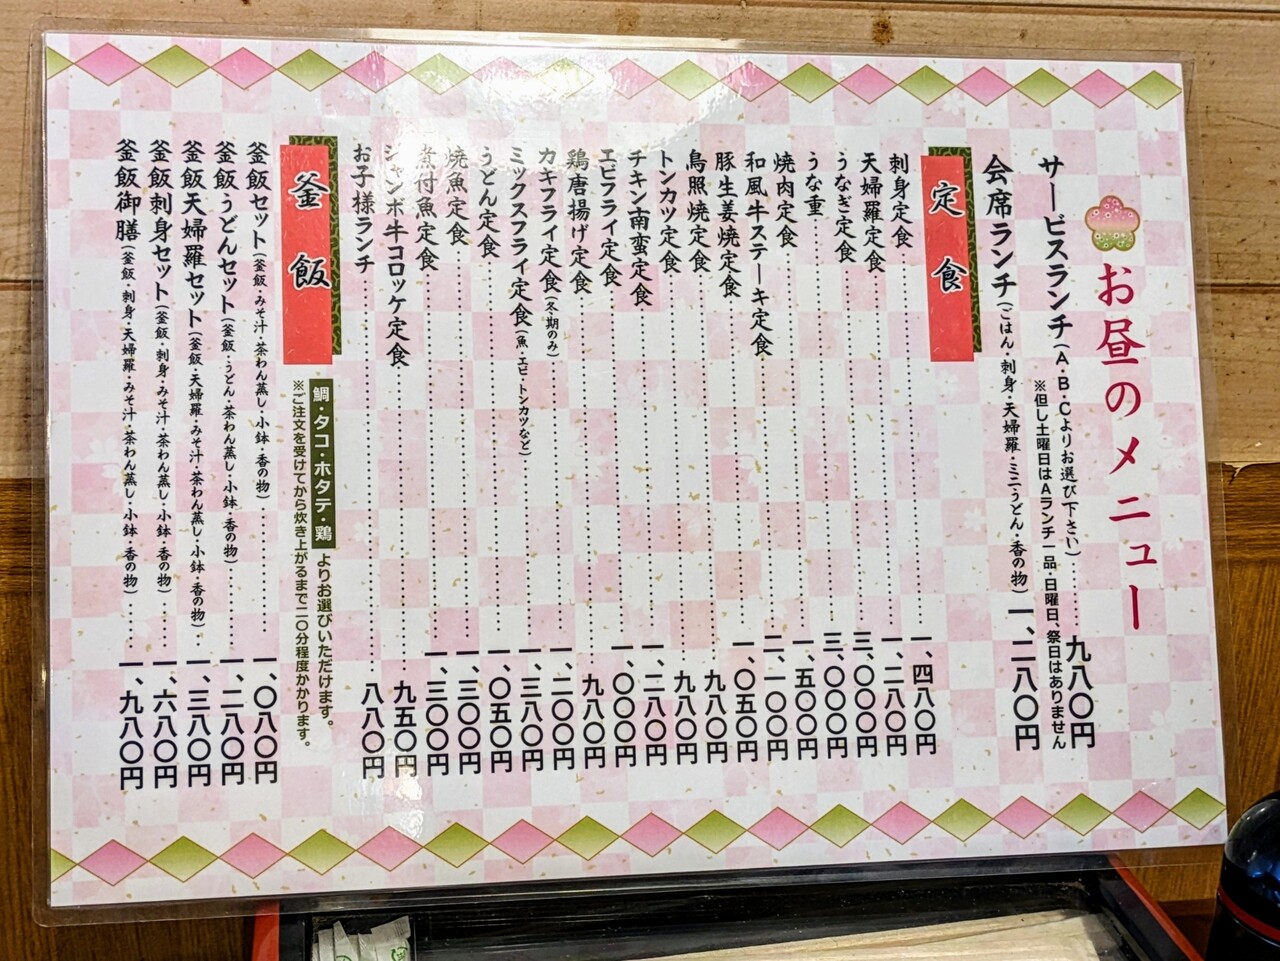 お昼のメニュー
サービスランチ(A・B・Cよりお選び下さい)……九八〇円
※但し土曜日はAランチ一品・日曜日、祭日はありません
会席ランチ(ごはん・刺身・天婦羅・ミニうどん・香の物)一、二八〇円
定食
刺身定食……一、四八〇円
天婦羅定食……一、二八〇円
うなぎ定食……三、〇〇〇円
うな重……三、〇〇〇円
焼肉定食……一、五〇〇円
和風牛ステーキ定食……二、一〇〇円
豚生姜焼定食……一、〇五〇円
鳥照焼定食……九八〇円
トンカツ定食……九八〇円
チキン南蛮定食……一、二八〇円
エビフライ定食……一、〇〇〇円
鶏唐揚げ定食……九八〇円
カキフライ定食(冬期のみ)……一、二〇〇円
ミックスフライ定食(魚・エビ・トンカツなど)……一、三八〇円
うどん定食……一、〇五〇円
焼魚定食……一、三〇〇円
煮付魚定食……一、三〇〇円
ジャンボ牛コロッケ定食……九五〇円
お子様ランチ……八八〇円
釜飯
鯛・タコ・ホタテ・鶏 よりお選びいただけます。
※ご注文を受けてから炊き上がるまで二〇分程度かかります。
釜飯セット(釜飯・みそ汁・茶わん蒸し・小鉢・香の物)……一、〇八〇円
釜飯うどんセット(釜飯・うどん・茶わん蒸し・小鉢・香の物)……一、二八〇円
釜飯天婦羅セット(釜飯・天婦羅・みそ汁・茶わん蒸し・小鉢・香の物)……一、三八〇円
釜飯刺身セット(釜飯・刺身・みそ汁・茶わん蒸し・小鉢・香の物)……一、六八〇円
釜飯御膳(釜飯・刺身・天婦羅・みそ汁・茶わん蒸し・小鉢・香の物)……一、九八〇円